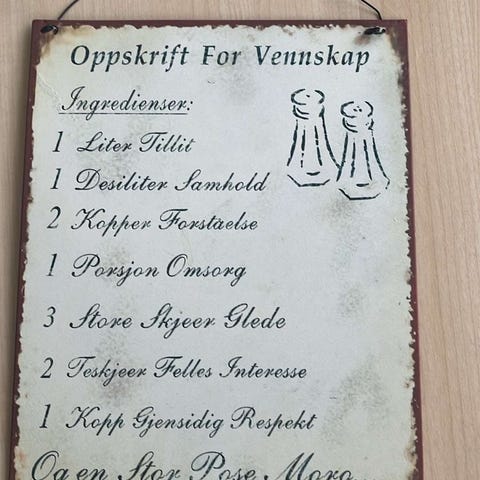 Oppskrift For Vennskap
Ingredienser:
1 Liter Tillit
1 Desiliter Samhold
2 Kopper Forståelse
1 Porsjon Omsorg
3 Store Skjeer Glede
2 Teskjeer Felles Interesse
1 Kopp Gjensidig Respekt
Og en Stor Pose Moro...